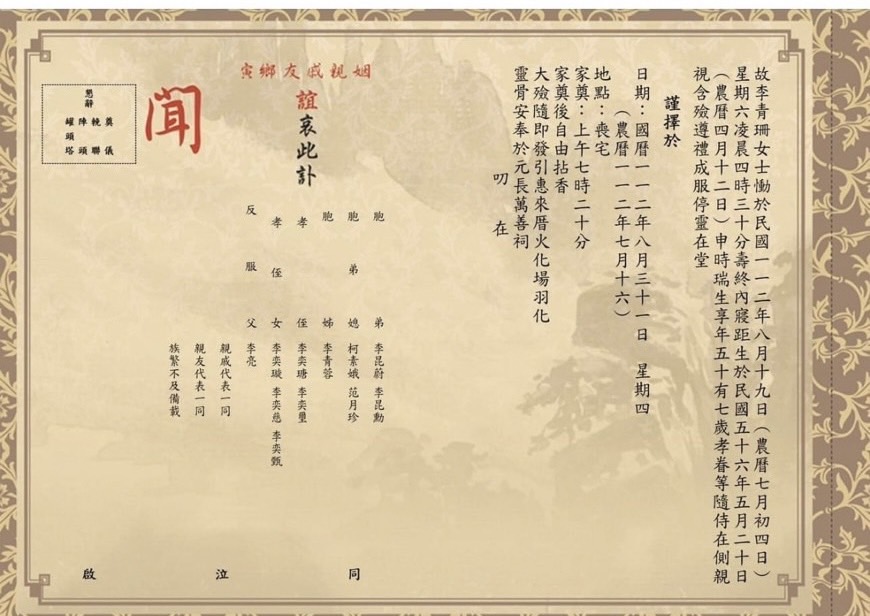 故李青珊女士慟於民國一一二年八月十九日（農曆七月初四日）
星期六凌晨四時三十分壽終內寢距生於民國五十六年五月二十日
（農曆四月十二日）申時瑞生享年五十有七歲孝眷等隨侍在側親
視含殮遵禮成服停靈在堂
謹擇於
日期：國曆一一二年八月三十一日 星期四
（農曆一一二年七月十六）
地點：喪宅
家奠：上午七時二十分
家奠後自由拈香
大殮隨即發引惠來厝火化場羽化
靈骨安奉於元長萬善祠
叨在
寅鄉友戚親姻
誼哀此訃
聞
懇辭
奠儀
輓聯
陣頭
罐頭塔
胞弟 李昆蔚 李昆勳
胞弟媳 柯素娥 范月珍
胞姊 李青蓉
孝侄 李奕瑭 李奕璽
孝侄女 李奕璇 李奕慈 李奕甄
反服父 李亮
親戚代表一同
親友代表一同
族繁不及備載
同泣啟